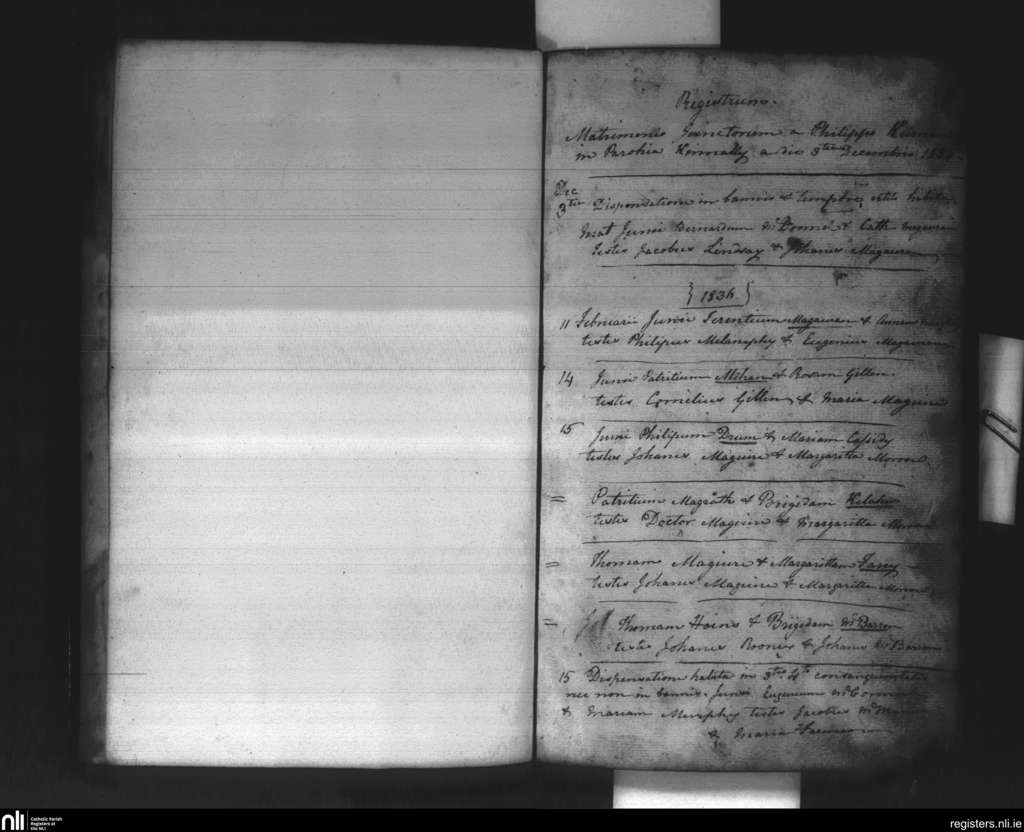 Registrum.
Matrimonio Junctorum a Philippo
in Parohia Kinnally a die 3 Decembris
Dec
3 Dispensatione in bannis &
Mat Junxi Bernardum McDonnel & Cath
testes Jacobus Lindsay & Johanes Magauran
1836
11 Februarii Junxi Terentium Magauran & Annam
testes Philipus Melanephy & Eugenius Magauran
14 Junxi Patritium Mehan & Rosam Gillen
testes Cornelius Gillen & Maria Maguire
15 Junxi Philipum Drum & Mariam Cassidy
testes Johanes Maguire & Margaritta Morow
= Patritium Magrath & Brigidam
testes Doctor Maguire & Margaritta Morow
= Thomam Maguire & Margarittam
testes Johanes Maguire & Margaritta Morow
= Thomam Hoins & Brigidam McBarron
testes Johanes Rooney & Johanes McBarron
15 Dispensatione habita in 3tio 4to consanguinitatis
nec non in bannis. Junxi Eugenium
& Mariam Murphy testes Jacobus
& Maria
nli Catholic Parish
Registers at
the NLI
registers.nli.ie